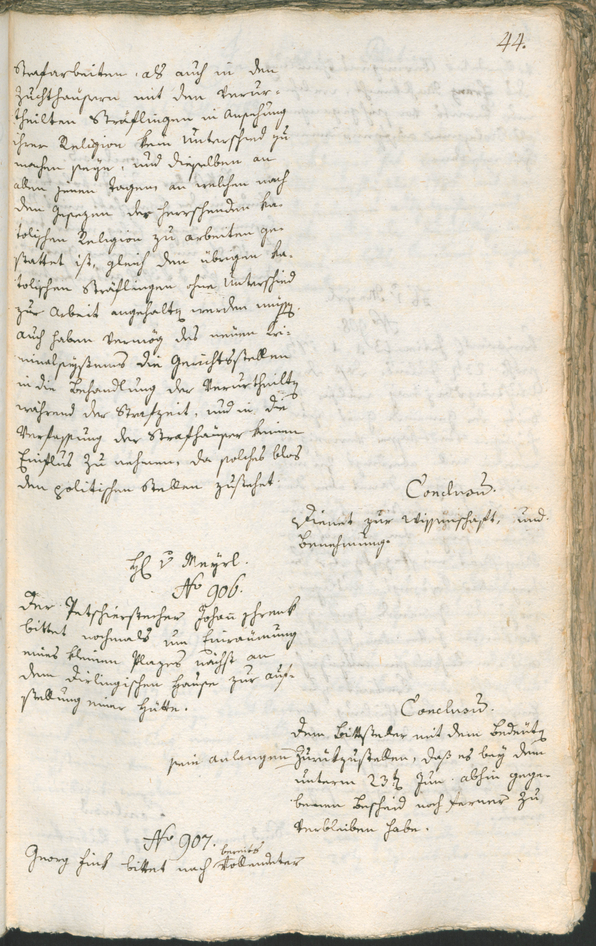 44.
Strafarbeiten, als auch in den
Zuchthäusern mit den verur-
theilten Sträflingen in Ansehung
ihrer Religion kein Unterschied zu
machen seye, und dieselben an
allen jenen Tagen, an welchen nach
den Gesezen der herrschenden ka-
tolischen Religion zu arbeiten ge-
stattet ist, gleich den übrigen ka-
tolischen Sträflingen ohne Unterschied
zur Arbeit angehalten werden müssen.
auch haben vermög des neuen Kri-
minalsystems die Gerichtsstellen
in die Behandlung der Verurtheilten
während der Strafzeit, und in die
Verfassung der Strafhäuser keinen
Einflus zu nehmen, da solches blos
den politischen Stellen zustehet.
Conclusum.
Dienet zur Wissenschaft, und
Benehmung.
H v Meyrl.
No 906.
Der Petschierstecher Johann Schenk
bittet nochmals um Einraumung
eines kleinen Plazes nächst an
dem Dirlingischen Hause zur auf-
stellung einer Hütte.
Conclusum.
Dem Bittsteller mit dem Bedeuten
sein anlangen zurükzustellen, daß es bey dem
unterm 23ten Jun. abhin gege-
benen Bescheid noch ferner zu
verbleiben habe.
No 907.
Georg Fink bittet nach bereits vollendeter